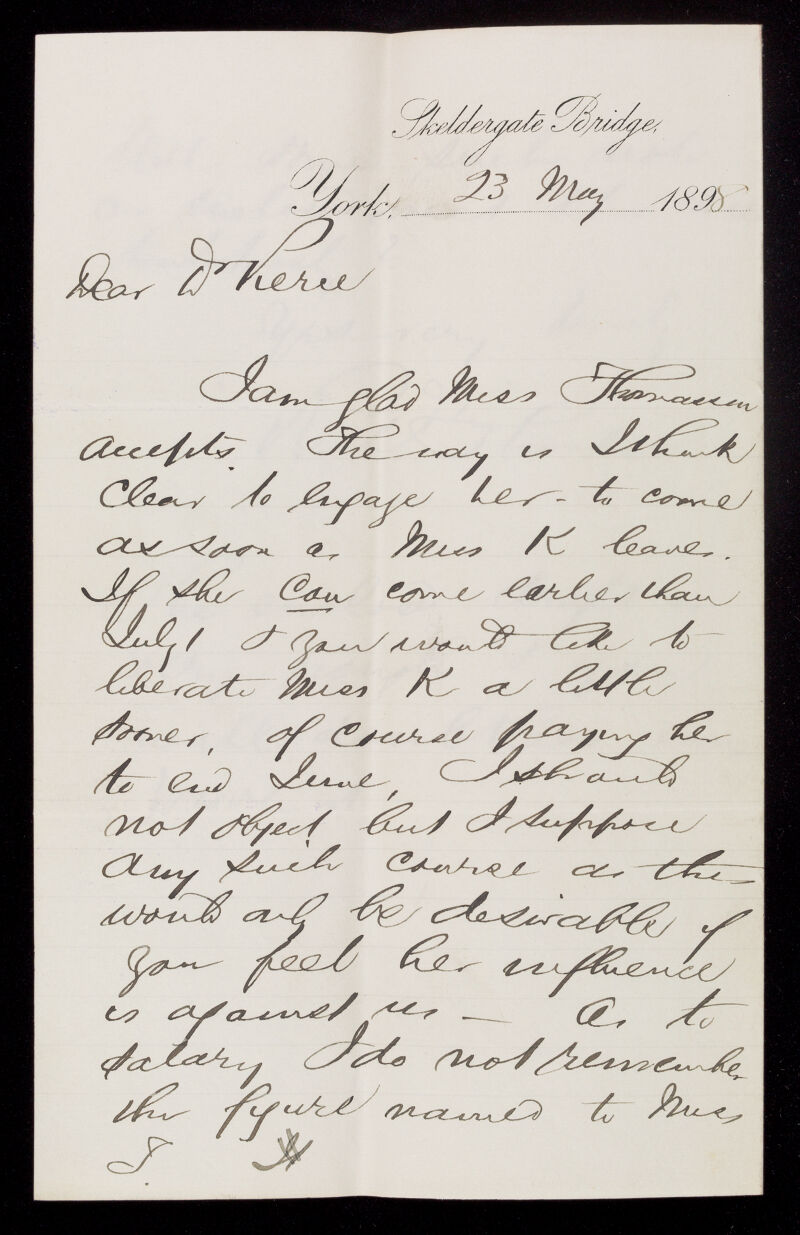 Skeldergate Bridge,
York, 23 May 1898
Dear Dr Pierce
I am glad Miss Thomasson
accepts. The way is I think
clear to engage her - to come
as soon as Miss K leaves.
If she can come earlier than
July 1 & you would like to
liberate Miss K a little
sooner, of course paying her
to end June, I should
not object but I suppose
any such course as this
would only be desirable if
you feel her influence
is against us — As to
salary I do not remember
the figure named to Miss
T.